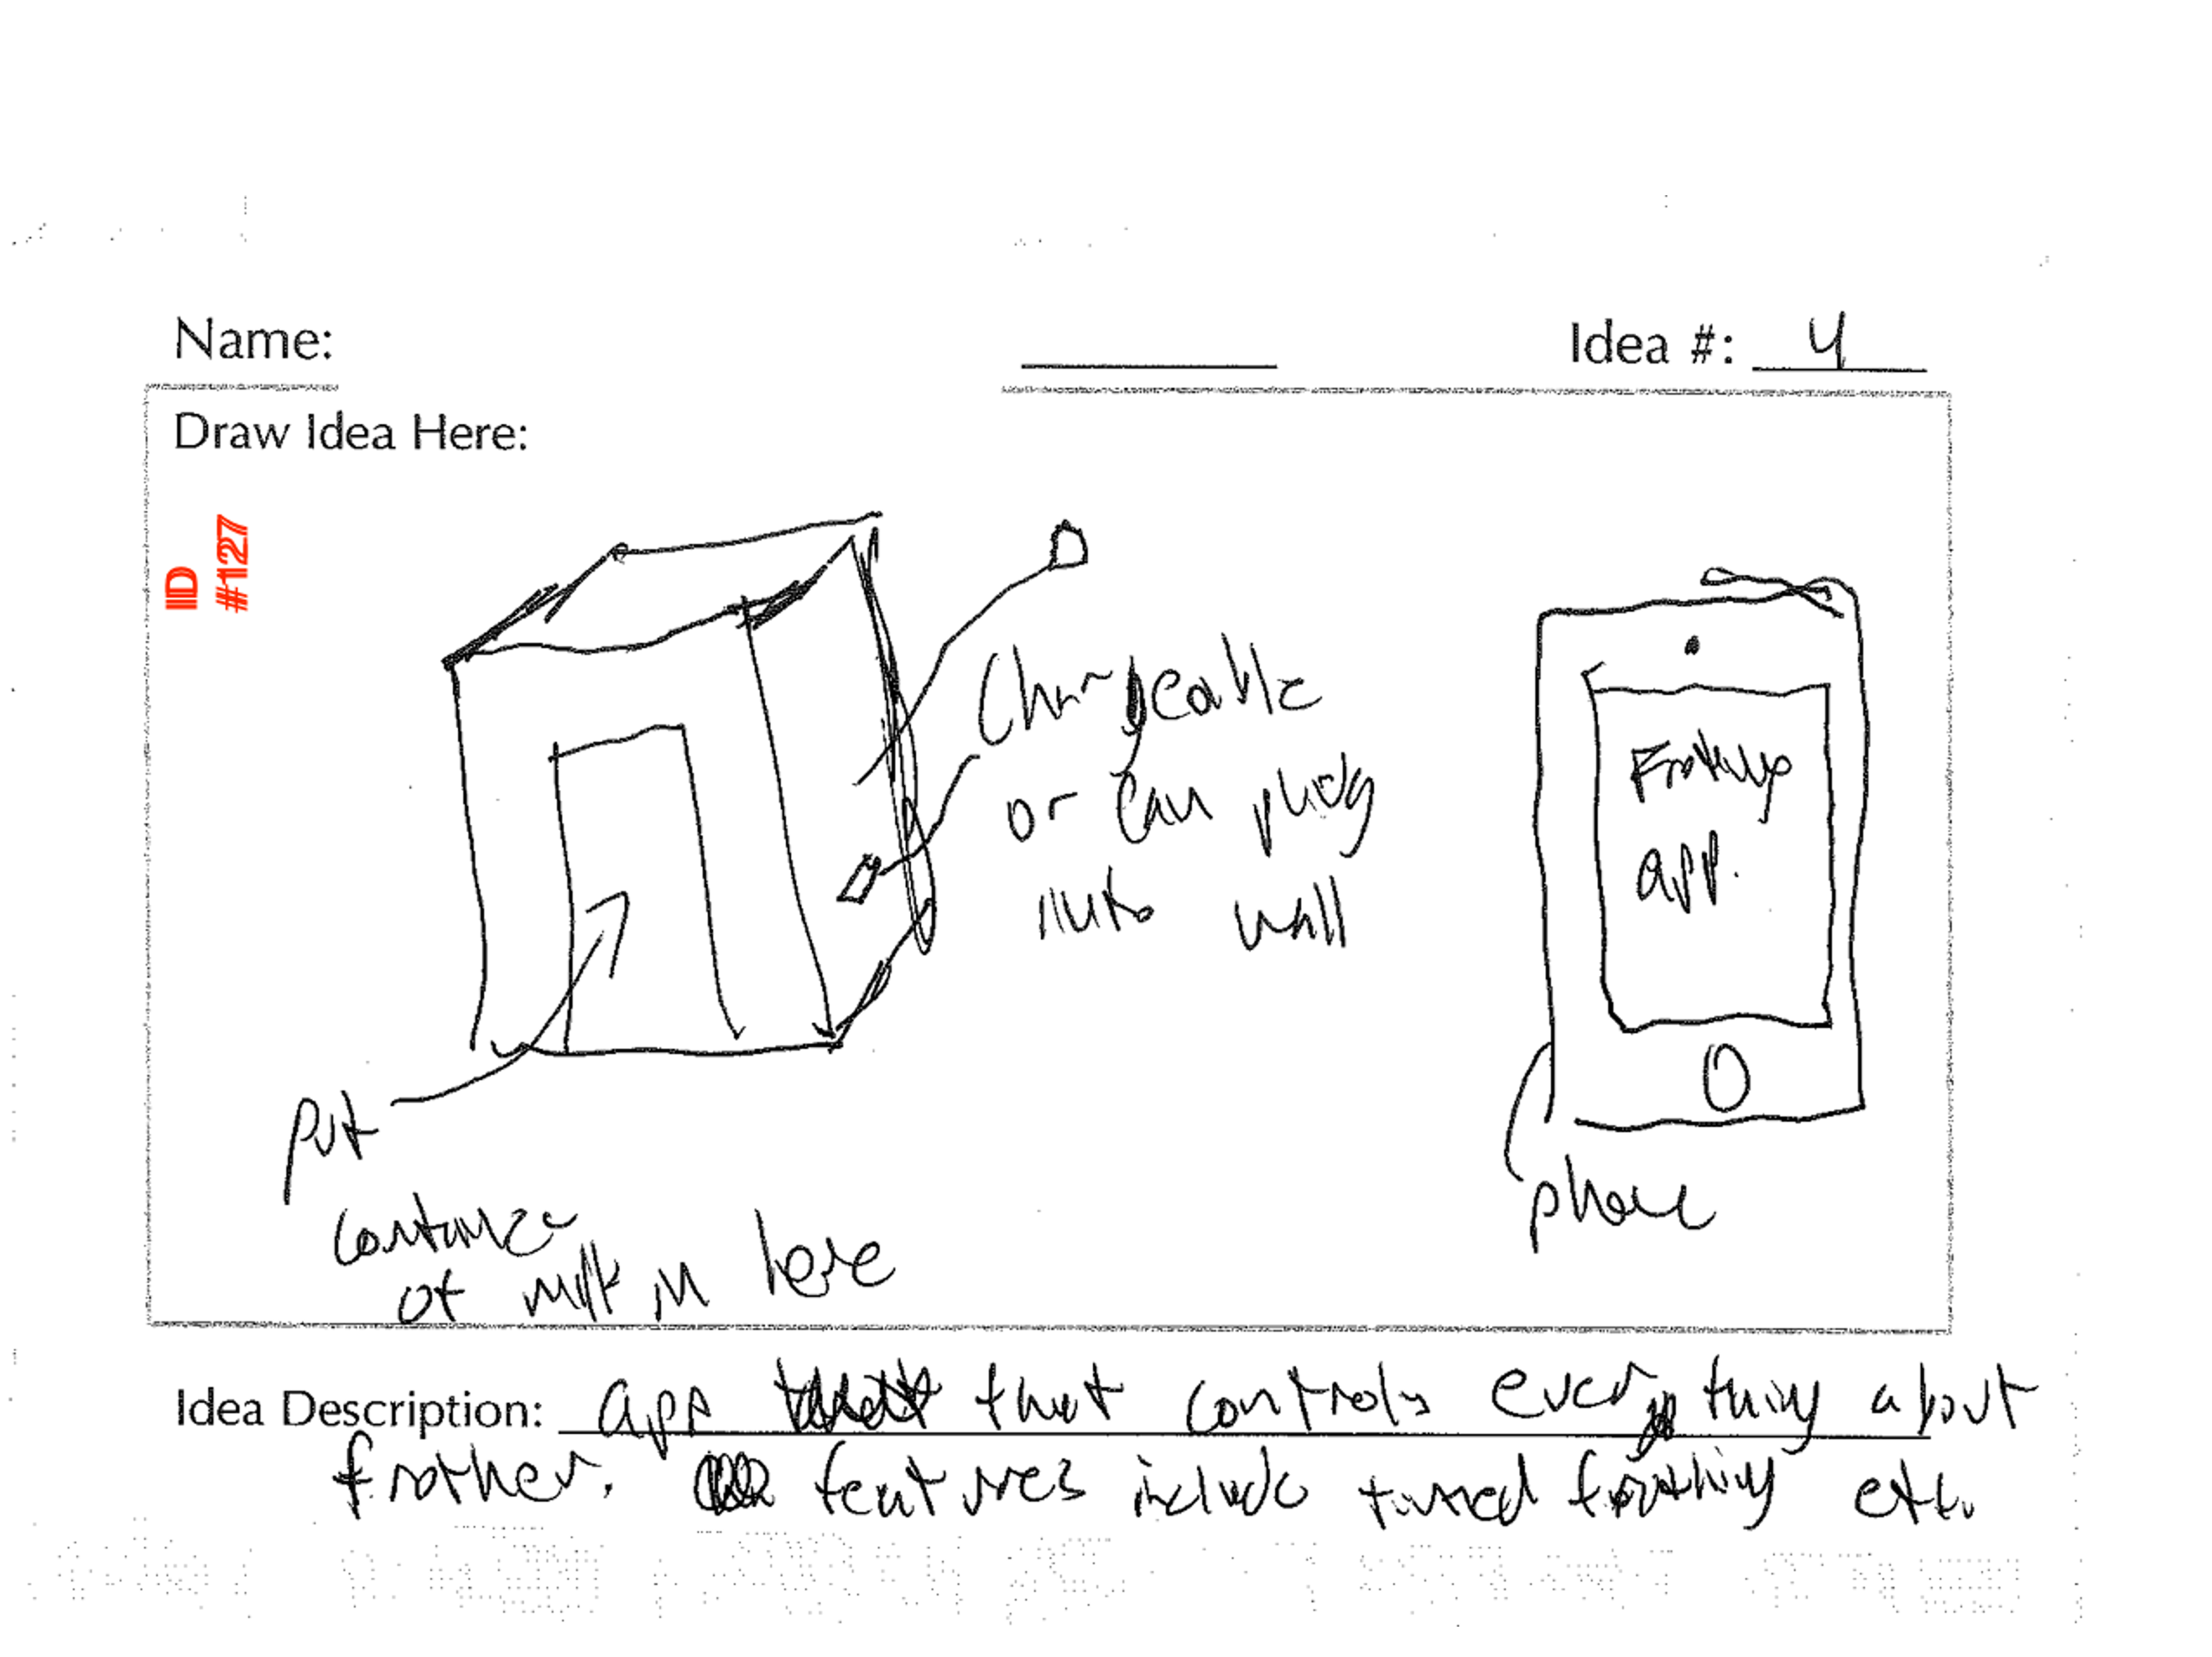 Name:
Idea #: 4
Draw Idea Here:
ID
#127
Chargeable
or can plug
into wall
Frothing
app.
put
container
of milk in here
phone
Idea Description: app that controls everything about
frother. features include timed frothing etc.